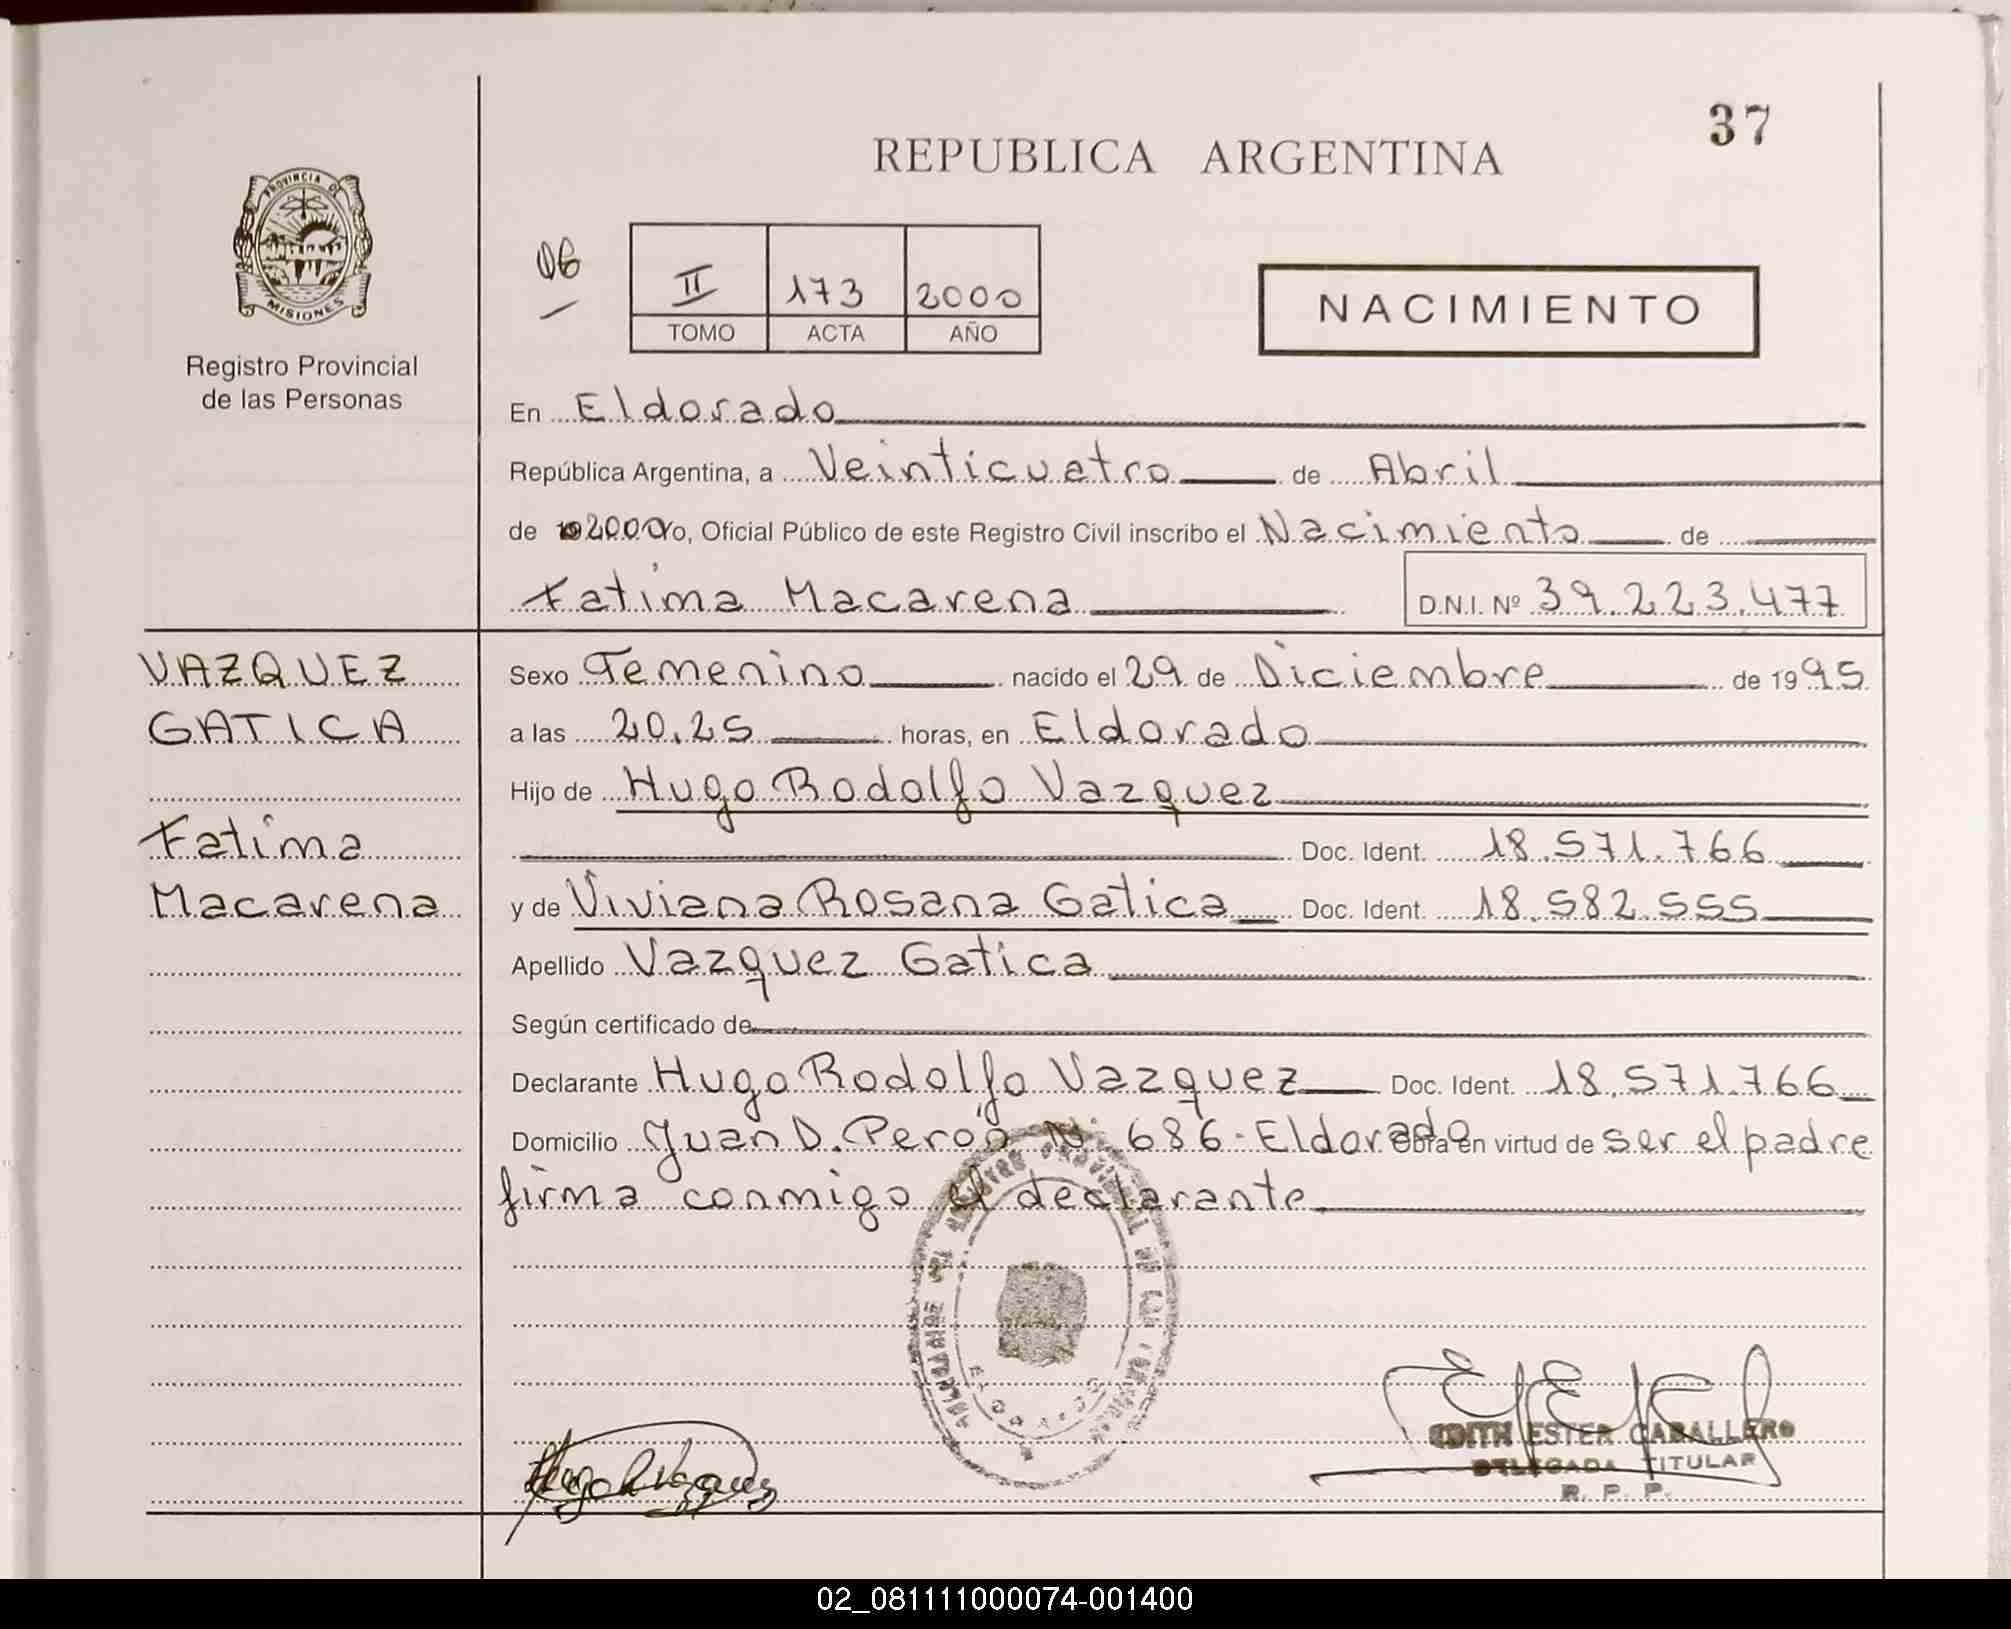 37
REPUBLICA ARGENTINA
PROVINCIA DE
MISIONES
Registro Provincial
de las Personas
06
II 173 2000
TOMO ACTA AÑO
NACIMIENTO
En Eldorado
República Argentina, a Veinticuatro de Abril
de 2000 Yo, Oficial Público de este Registro Civil inscribo el Nacimiento de
Fatima Macarena D.N.I. Nº 39.223.477
VAZQUEZ Sexo Femenino nacido el 29 de Diciembre de 1995
GATICA a las 20.25 horas, en Eldorado
Hijo de Hugo Rodolfo Vazquez
Fatima Doc. Ident. 18.571.766
Macarena y de Viviana Rosana Gatica Doc. Ident. 18.582.555
Apellido Vazquez Gatica
Según certificado de
Declarante Hugo Rodolfo Vazquez Doc. Ident. 18.571.766
Domicilio Juan D. Perón Nº 686 - Eldorado Obra en virtud de ser el padre
firma conmigo el declarante
Hugo R Vazquez
EDITH ESTER CABALLERO
DELEGADA TITULAR
R. P. P.
02_081111000074-001400